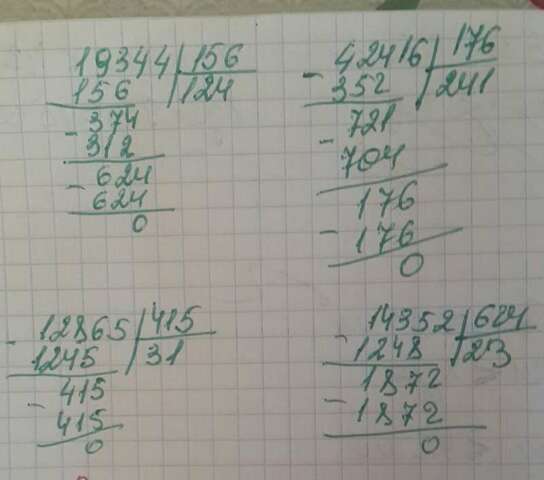 19344 | 156
156 | 124
- 374
312
- 624
624
0
- 42416 | 176
352 | 241
- 721
704
176
- 176
0
- 12865 | 415
1245 | 31
- 415
415
0
- 14352 | 624
1248 | 23
1872
- 1872
0